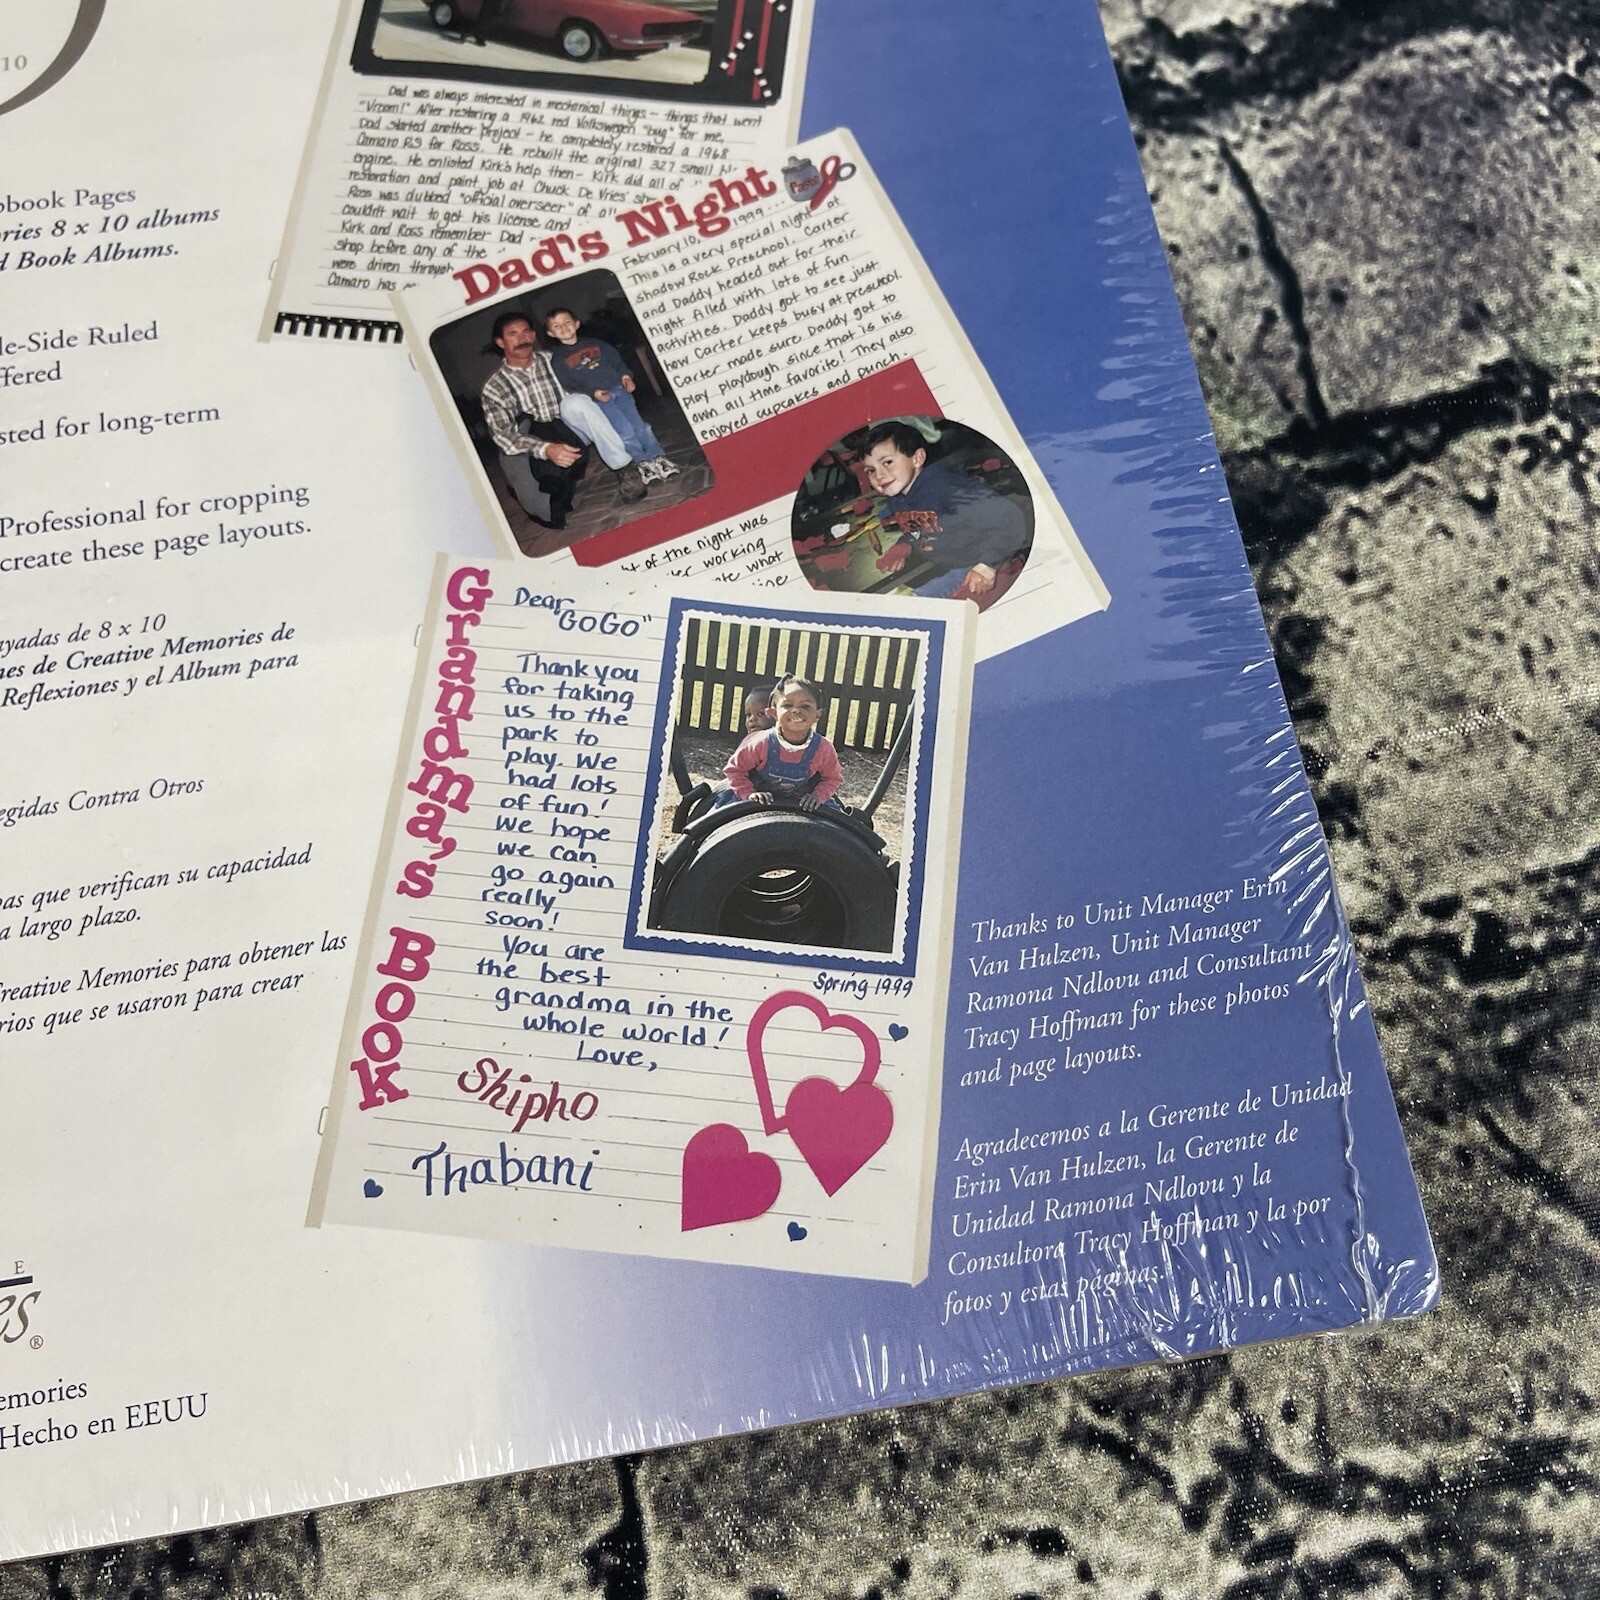 10
book Pages
ries 8 x 10 albums
d Book Albums.
le-Side Ruled
ffered
sted for long-term
Professional for cropping
create these page layouts.
ayadas de 8 x 10
nes de Creative Memories de
Reflexiones y el Album para
egidas Contra Otros
bas que verifican su capacidad
a largo plazo.
Creative Memories para obtener las
rios que se usaron para crear
E
es®
emories
Hecho en EEUU
Dad was always interested in mechanical things - things that went
"Vroom!" After restoring a 1962 red Volkswagen "bug" for me,
Dad started another project - he completely restored a 1968
Camaro RS for Ross. He rebuilt the original 327 small
engine. He enlisted Kirk's help then - Kirk did all of
restoration and paint job at Chuck De Vries'
Ross was dubbed "official overseer" of
couldn't wait to get his license and
Kirk and Ross remember Dad
shop before any of the
were driven through
Camaro has
Dad's Night
February 10, 1999...
This is a very special night at
Shadow Rock Preschool. Carter
and Daddy headed out for their
night filled with lots of fun
activities. Daddy got to see just
how Carter keeps busy at preschool.
Carter made sure Daddy got to
play playdough since that is his
own all time favorite! They also
enjoyed cupcakes and punch.
of the night was
working
what
Grandma's Book
Dear
"GoGo"
Thank you
for taking
us to the
park to
play. We
had lots
of fun!
We hope
we can
go again
really
soon!
You are
the best
grandma in the
whole world!
Love,
Shipho
Thabani
Spring 1999
Thanks to Unit Manager Erin
Van Hulzen, Unit Manager
Ramona Ndlovu and Consultant
Tracy Hoffman for these photos
and page layouts.
Agradecemos a la Gerente de Unidad
Erin Van Hulzen, la Gerente de
Unidad Ramona Ndlovu y la
Consultora Tracy Hoffman y la por
fotos y estas páginas.